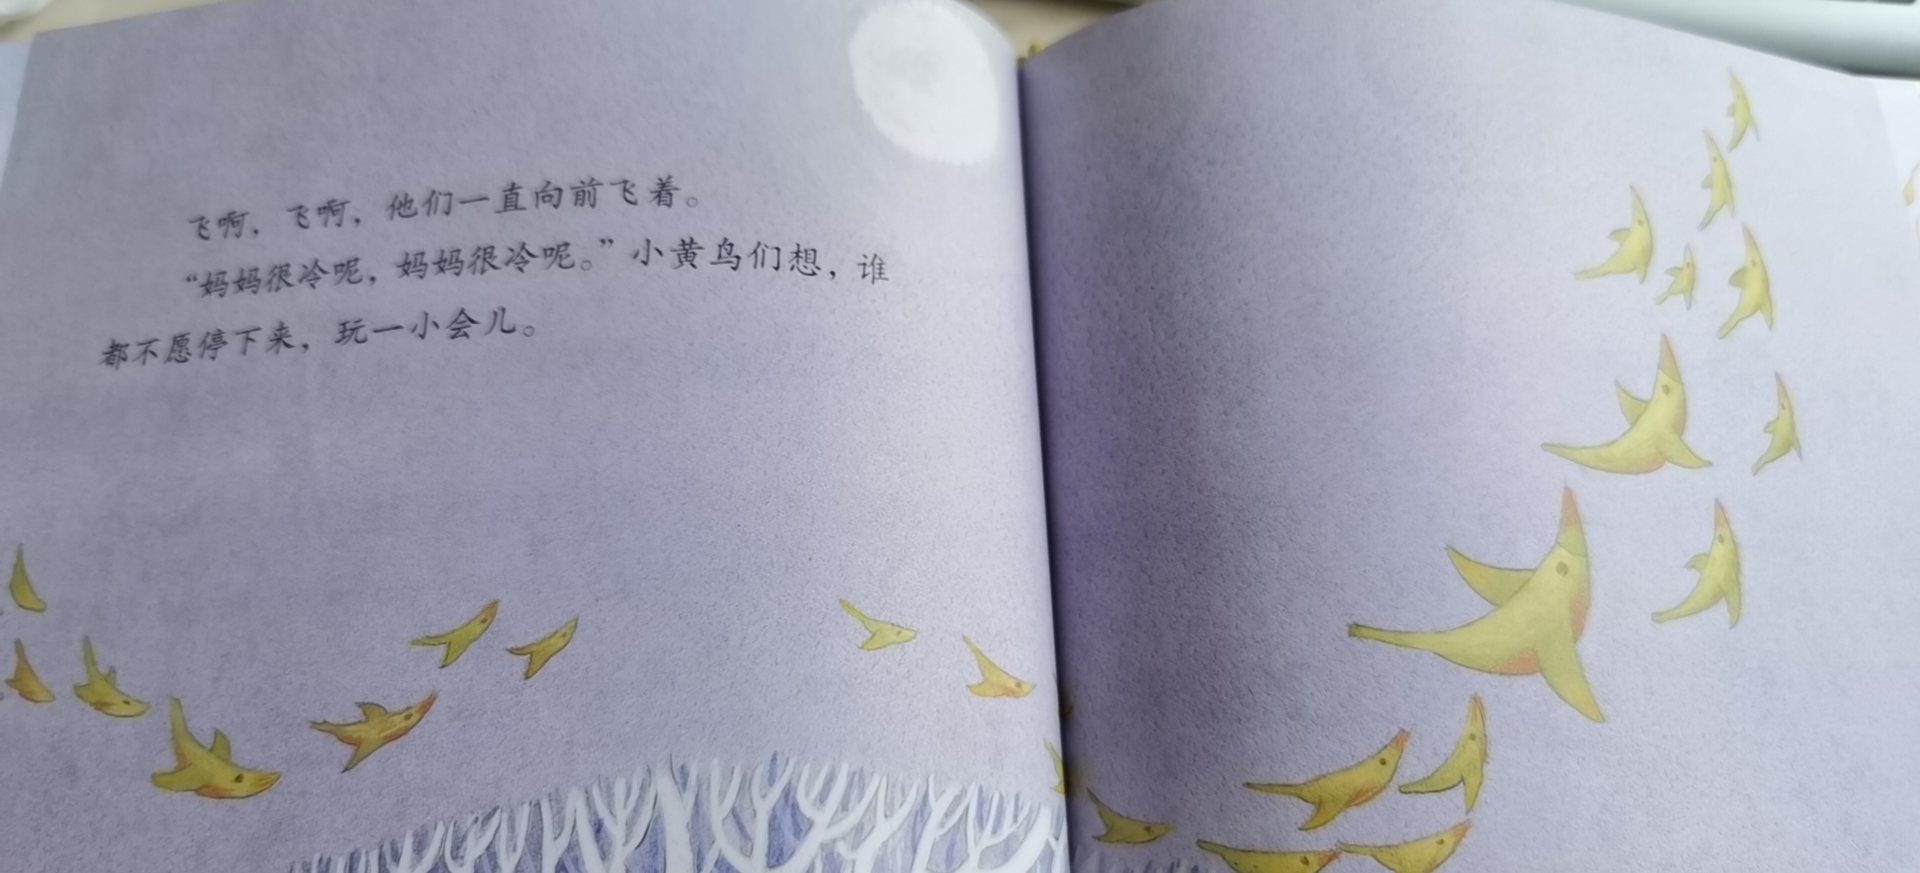 飞啊，飞啊，他们一直向前飞着。
“妈妈很冷呢，妈妈很冷呢。”小黄鸟们想，谁
都不愿停下来，玩一小会儿。